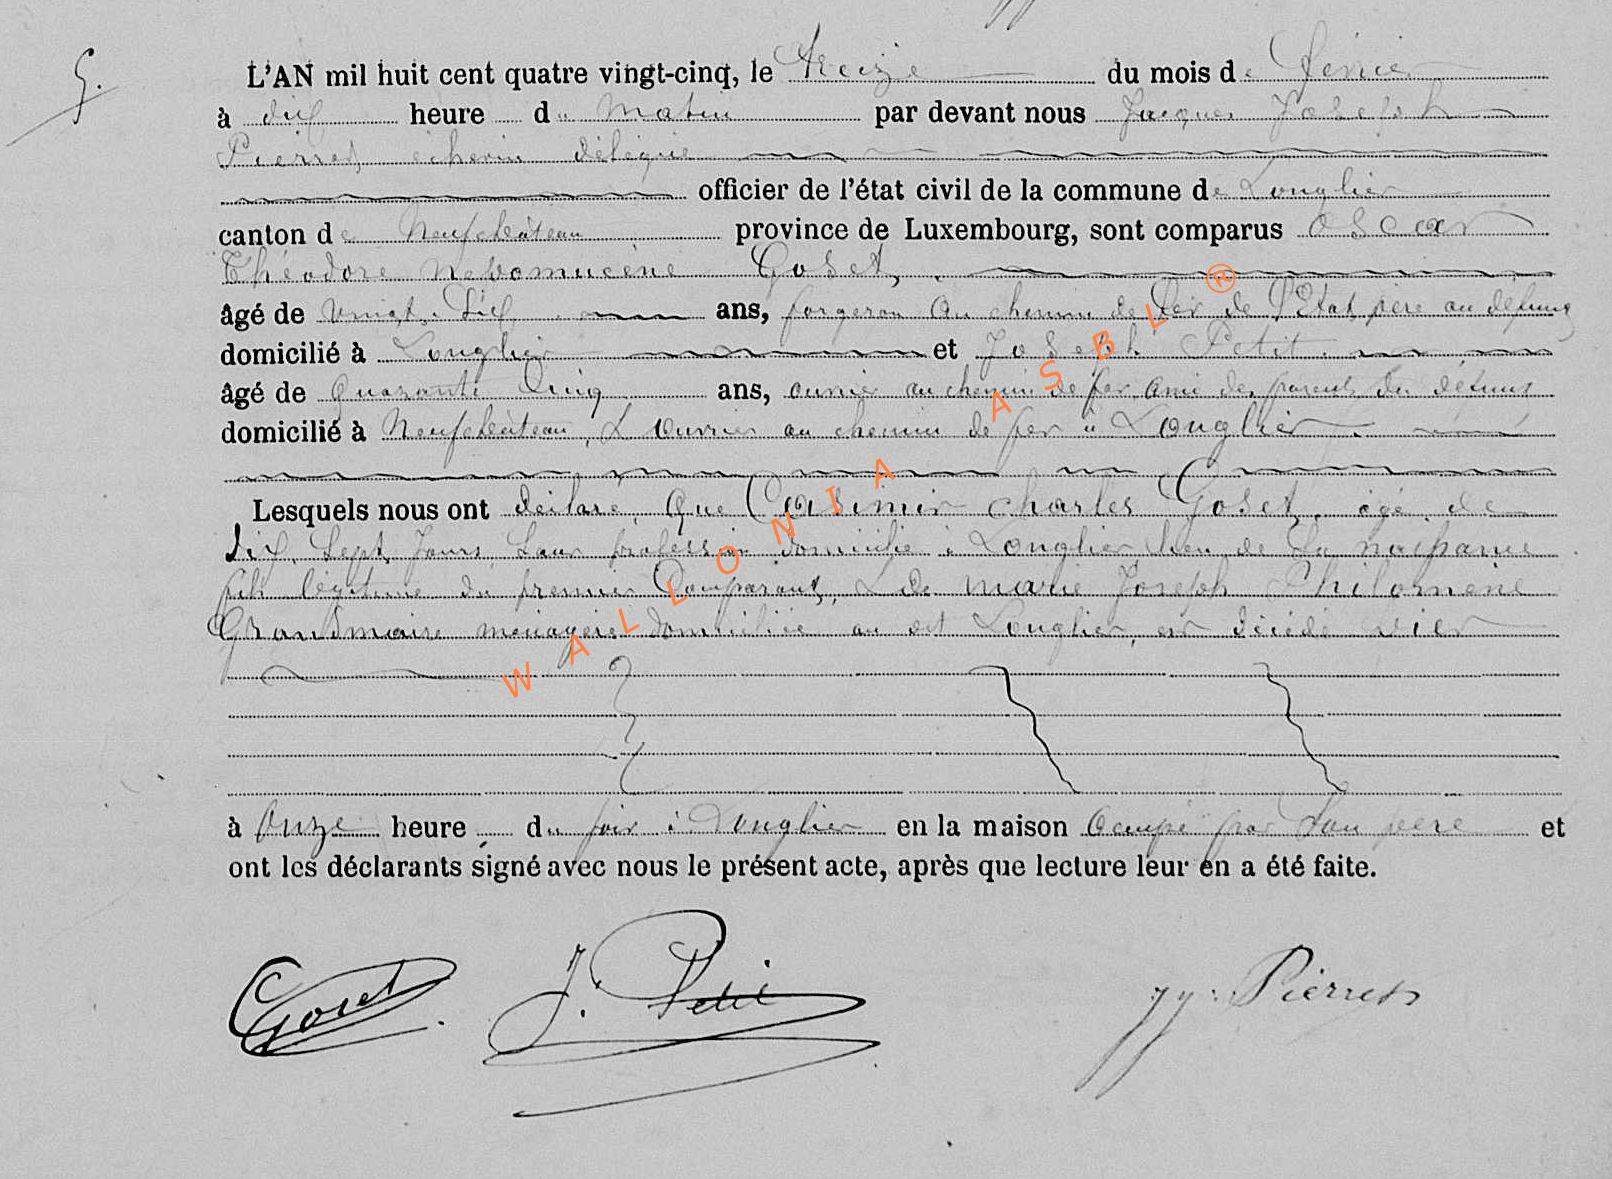 5.
L'AN mil huit cent quatre vingt-cinq, le Treize du mois de Février
à dix heure du Matin par devant nous Jacques Joseph
Pierret, échevin délégué
officier de l'état civil de la commune de Longlier
canton de Neufchâteau province de Luxembourg, sont comparus Oscar
Théodore Nepomucène Goset,
âgé de vingt Six ans, forgeron au chemin de fer de l'Etat, père au défunt
domicilié à Longlier et Joseph Petit
âgé de Quarante Cinq ans, ouvrier au chemin de fer ami des parents du défunt
domicilié à Neufchâteau, & ouvrier au chemin de fer à Longlier
Lesquels nous ont déclaré que Casimir Charles Goset, âgé de
dix Sept Jours Sans profession domicilié à Longlier lieu de Sa naissance
fils légitime du premier Comparant, & de Marie Joseph Philomène
Grandmaire ménagère domiciliée au dit Longlier, est décédé hier
à Onze heure du soir à Longlier en la maison Occupé par Son père et
ont les déclarants signé avec nous le présent acte, après que lecture leur en a été faite.
Goset J. Petit JJ: Pierret
WALLONIA ASBL ®